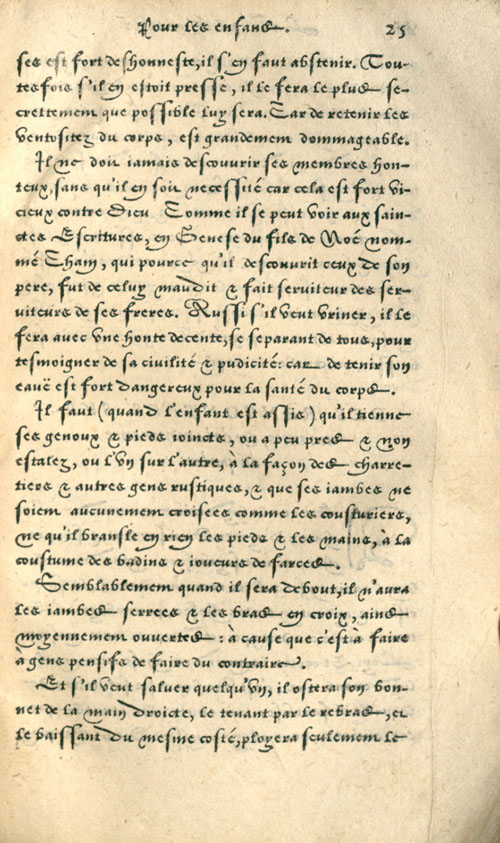 Pour les enfans. 25
ses est fort deshonneste, il s'en faut abstenir. Tou-
tesfois s'il en estoit pressé, il le fera le plus se-
crettement que possible luy sera. Car de retenir les
ventositez du corps, est grandement dommageable.
Il ne doit iamais descouvrir ses membres hon-
teux, sans qu'il en soit necessité car cela est fort vi-
cieux contre Dieu. Comme il se peut voir aux sain-
ctes Escritures, en Genese du fils de Noé nom-
mé Cham, qui pource qu'il descouvrit ceux de son
pere, fut de celuy maudit & fait serviteur des ser-
viteurs de ses freres. Aussi s'il veut vriner, il le
fera avec vne honte decente, se separant de tous, pour
tesmoigner de sa civilité & pudicité: car de tenir son
eauë est fort dangereux pour la santé du corps.
Il faut (quand l'enfant est assis) qu'il tienne
ses genoux & pieds ioincts, ou a peu pres & non
estalez, ou l'vn sur l'autre, à la façon des charre-
tiers & autres gens rustiques, & que ses iambes ne
soient aucunement croisees comme les cousturiers,
ne qu'il bransle en rien les pieds & les mains, à la
coustume des badins & ioueurs de farces.
Semblablement quand il sera debout, il n'aura
les iambes serrees & les bras en croix, ains
moyennement ouvertes: à cause que c'est à faire
à gens pensifs de faire du contraire.
Et s'il veut saluer quelqu'vn, il ostera son bon-
net de la main droicte, le tenant par le rebras, et
le baissant du mesme costé, ployera seulement le